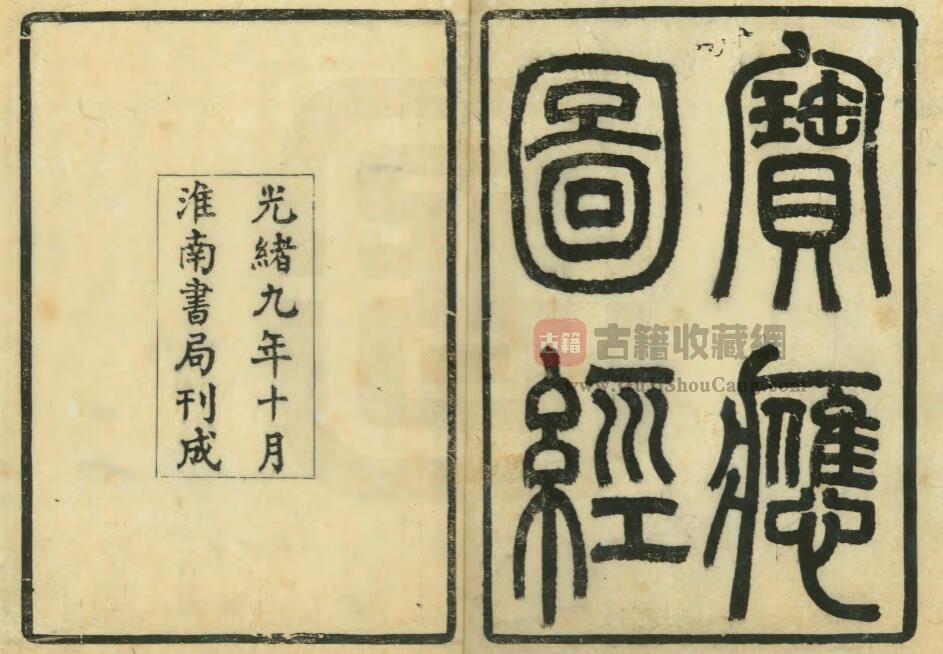 寶應
圖經
光緒九年十月
淮南書局刊成
古籍
古籍收藏網
www.GuJiShouCang.com